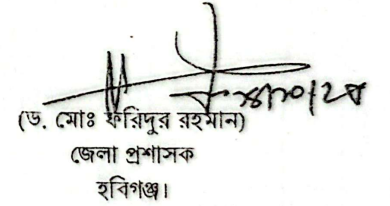 (ড. মোঃ ফরিদুর রহমান)
জেলা প্রশাসক
হবিগঞ্জ।